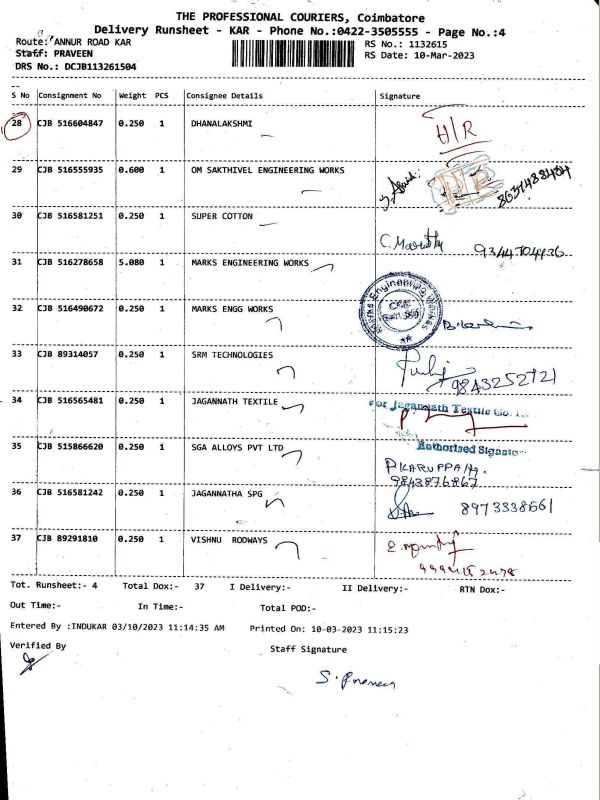 THE PROFESSIONAL COURIERS, Coimbatore
Delivery Runsheet - KAR - Phone No.:0422-3505555 - Page No.:4
Route: ANNUR ROAD KAR
RS No.: 1132615
Staff: PRAVEEN
RS Date: 10-Mar-2023
DRS No.: DCJB113261504
S No Consignment No Weight PCS Consignee Details Signature
28 CJB 516604847 0.250 1 DHANALAKSHMI H/R
29 CJB 516555935 0.600 1 OM SAKTHIVEL ENGINEERING WORKS
30 CJB 516581251 0.250 1 SUPER COTTON
31 CJB 516278658 5.080 1 MARKS ENGINEERING WORKS
32 CJB 516490672 0.250 1 MARKS ENGG WORKS
33 CJB 89314057 0.250 1 SRM TECHNOLOGIES
9843252721
34 CJB 516565481 0.250 1 JAGANNATH TEXTILE
For Jagannath Textile Co.
Authorised Signato
35 CJB 515866620 0.250 1 SGA ALLOYS PVT LTD
P.KARUPPA
9843876867
36 CJB 516581242 0.250 1 JAGANNATHA SPG
8973338561
37 CJB 89291810 0.250 1 VISHNU RODWAYS
Tot. Runsheet:- 4 Total Dox:- 37 I Delivery:- II Delivery:- RTN Dox:-
Out Time:- In Time:- Total POD:-
Entered By :INDUKAR 03/10/2023 11:14:35 AM Printed On: 10-03-2023 11:15:23
Verified By Staff Signature